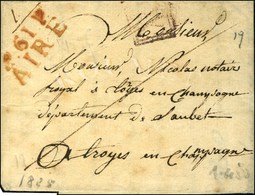 P 61 P
AIRE
Monsieur
19
Monsieur, Nicolas notaire
royal à troyes en Champagne
département de l'aube
A troyes en Champagne
1825